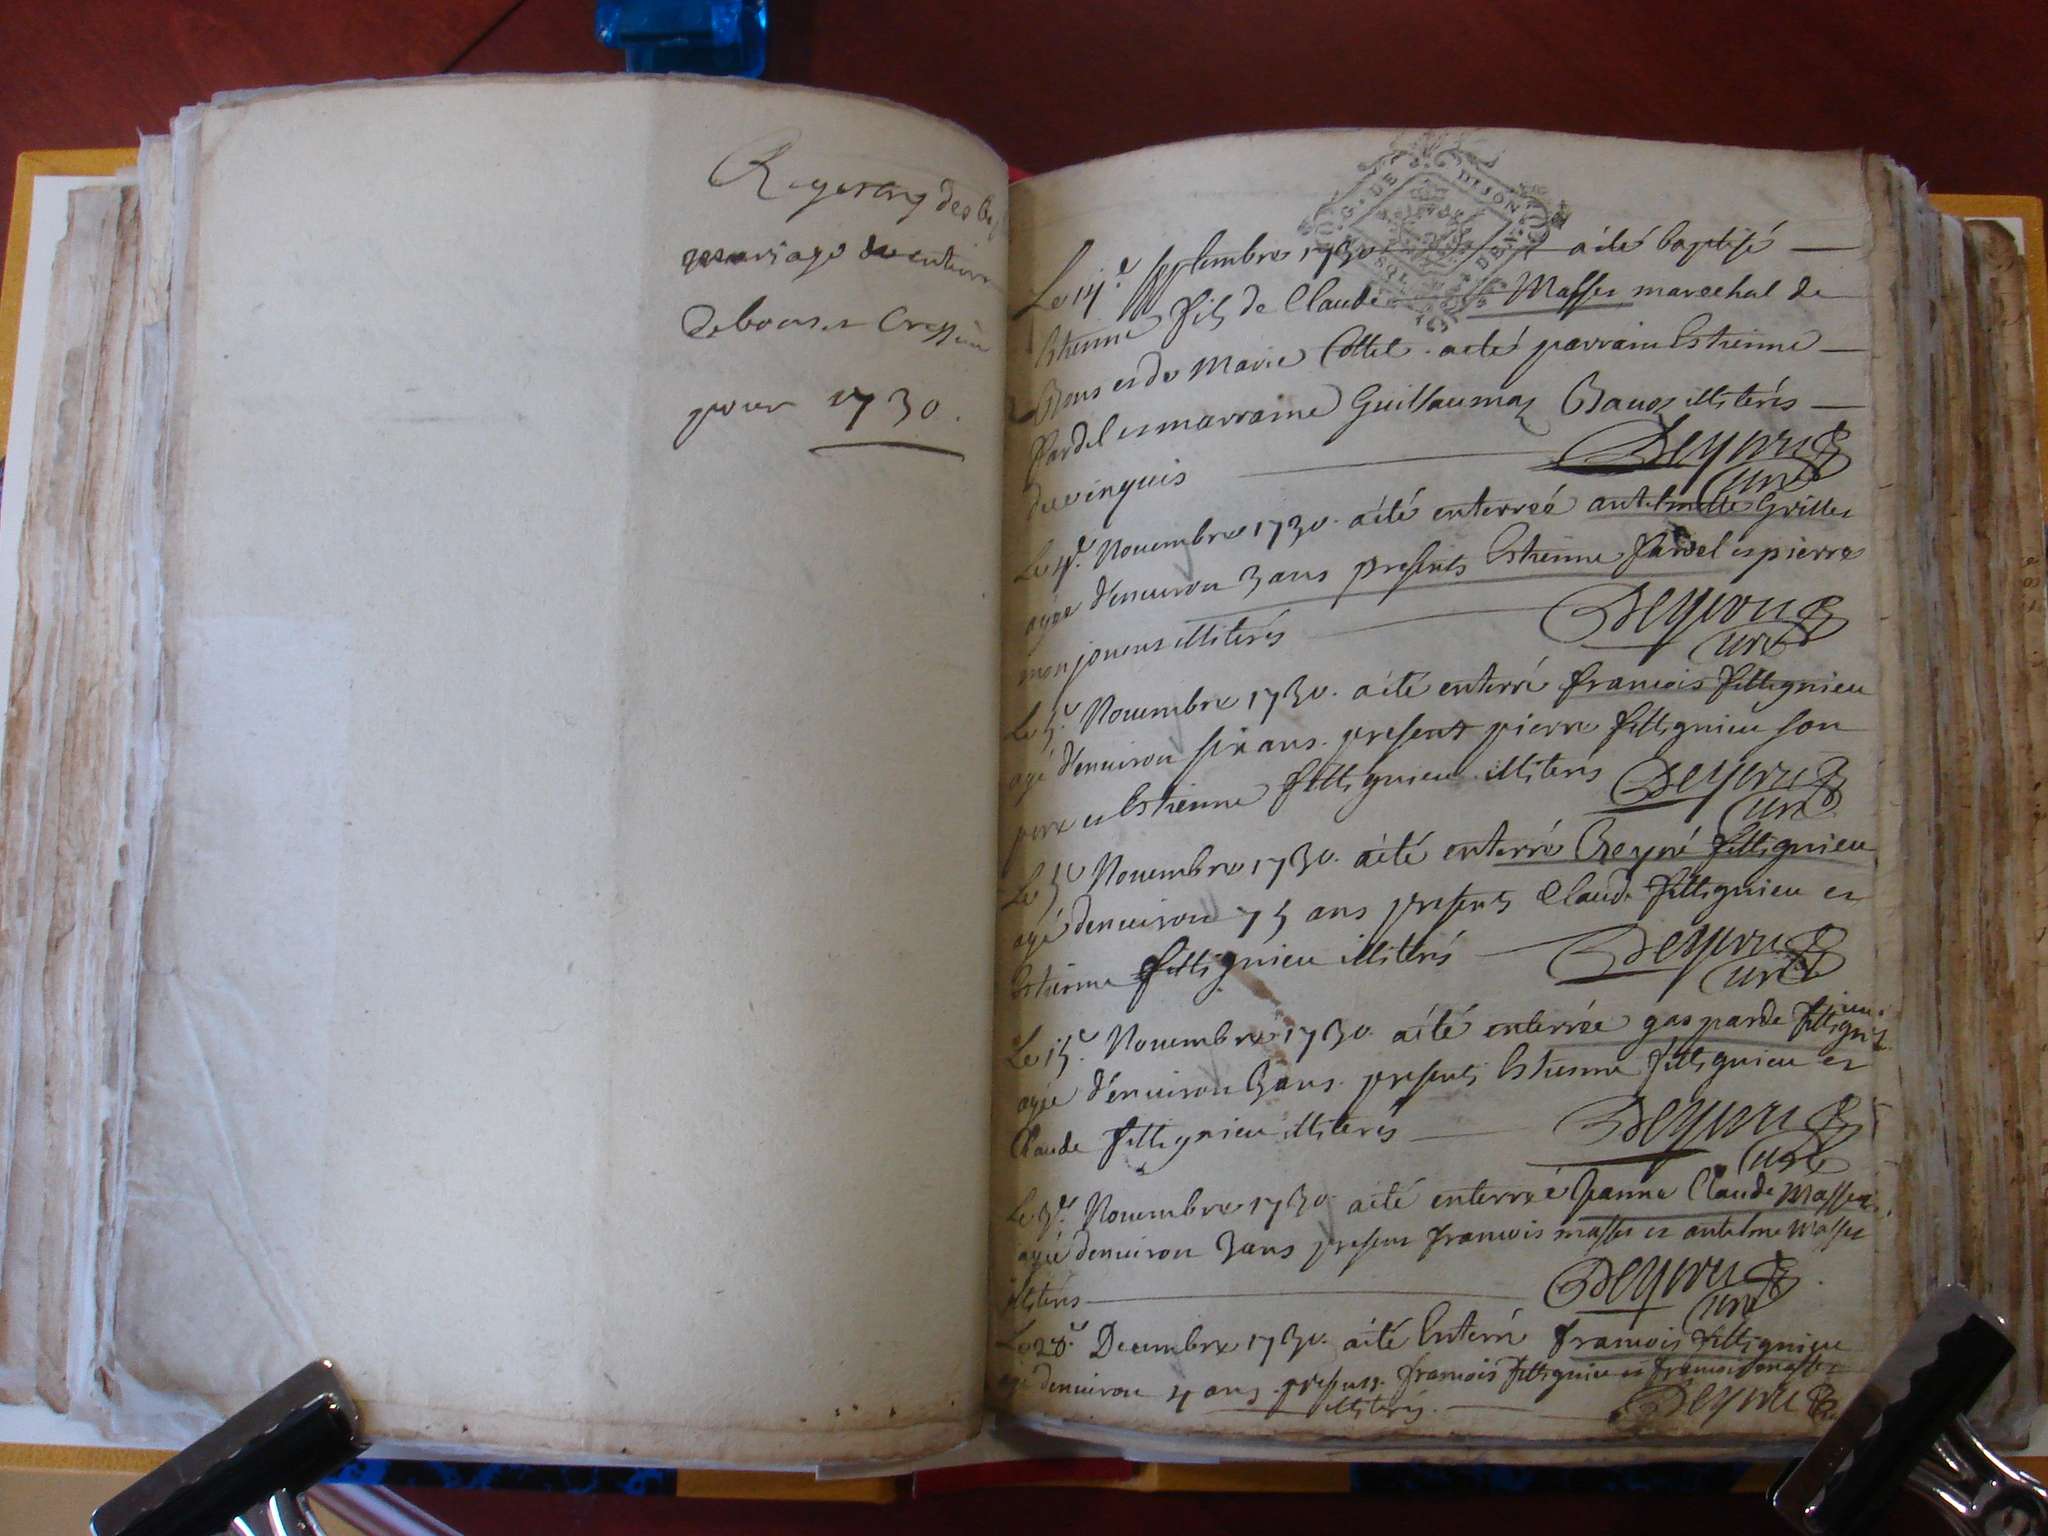 des
mariage
de bons et Cressieu
pour 1730.
G. DE DIJON
Le 14e septembre 1730 a été baptisé
Estienne fils de Claude Massei marechal de
Bons et de Marie Cottel. a été parrain Estienne
Fardel et marraine Guillaumaz illiterés
de enquis
Deyvru
Curé
Le 4e Novembre 1730. a été enterreé antelmette Grillei
agée d'enuiron 3 ans presents Estienne fardel et pierre
monjouent illiterés
Deyvru
Curé
Le 5e Novembre 1730. a été enterré francois fittignieu
agé d'enuiron six ans. present pierre fittignieu son
pere et Estienne fittignieu illiterés Deyvru
Curé
Le Novembre 1730. a été enterré fittignieu
agé denuiron 75 ans presents Claude fittignieu et
Estienne fittignieu illiterés Deyvru
Curé
Le 15e Novembre 1730. a été enterrée gasparde fittignieu
agée d'enuiron 3 ans. presents Estienne fittignieu et
Claude fittignieu illiterés Deyvru
Curé
Le Novembre 1730 a été enterreé Jeanne Claude Massei
agée denuiron 3 ans present francois massei et antelme Massei
illiterés Deyvru
Curé
Le 28e Decembre 1730. a été Enterré francois fittignieu
agé denuiron 4 ans. presents. francois fittignieu et francois massei
illiterés. Deyvru